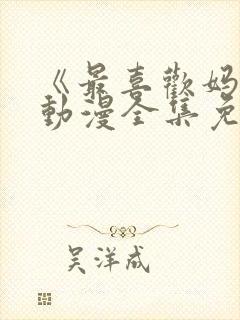 《最喜歡妈
動漫全集免
吴洋成